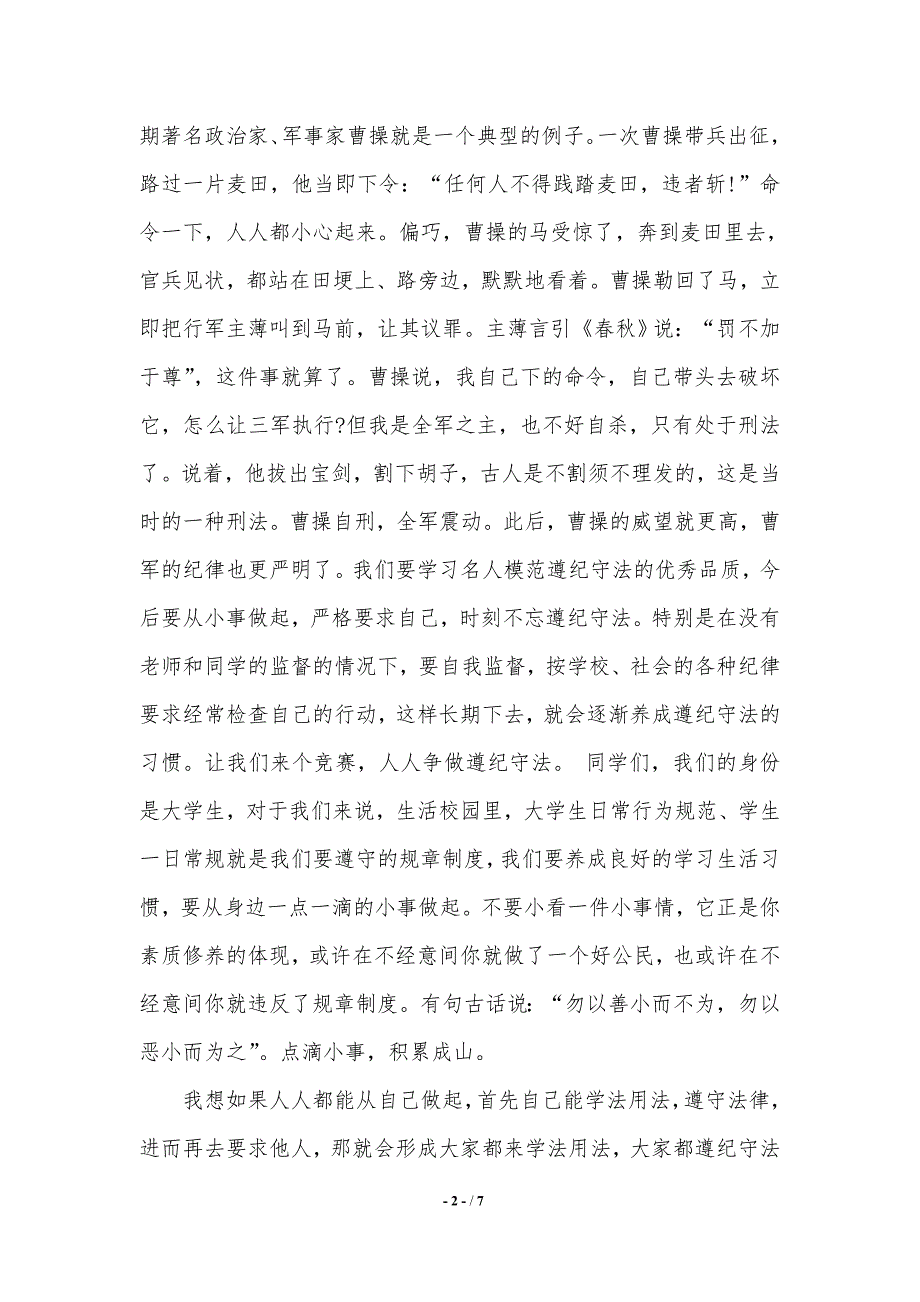 期著名政治家、军事家曹操就是一个典型的例子。一次曹操带兵出征，
路过一片麦田，他当即下令：“任何人不得践踏麦田，违者斩!”命
令一下，人人都小心起来。偏巧，曹操的马受惊了，奔到麦田里去，
官兵见状，都站在田埂上、路旁边，默默地看着。曹操勒回了马，立
即把行军主薄叫到马前，让其议罪。主薄言引《春秋》说：“罚不加
于尊”，这件事就算了。曹操说，我自己下的命令，自己带头去破坏
它，怎么让三军执行?但我是全军之主，也不好自杀，只有处于刑法
了。说着，他拔出宝剑，割下胡子，古人是不割须不理发的，这是当
时的一种刑法。曹操自刑，全军震动。此后，曹操的威望就更高，曹
军的纪律也更严明了。我们要学习名人模范遵纪守法的优秀品质，今
后要从小事做起，严格要求自己，时刻不忘遵纪守法。特别是在没有
老师和同学的监督的情况下，要自我监督，按学校、社会的各种纪律
要求经常检查自己的行动，这样长期下去，就会逐渐养成遵纪守法的
习惯。让我们来个竞赛，人人争做遵纪守法。 同学们，我们的身份
是大学生，对于我们来说，生活校园里，大学生日常行为规范、学生
一日常规就是我们要遵守的规章制度，我们要养成良好的学习生活习
惯，要从身边一点一滴的小事做起。不要小看一件小事情，它正是你
素质修养的体现，或许在不经意间你就做了一个好公民，也或许在不
经意间你就违反了规章制度。有句古话说：“勿以善小而不为，勿以
恶小而为之”。点滴小事，积累成山。
我想如果人人都能从自己做起，首先自己能学法用法，遵守法律，
进而再去要求他人，那就会形成大家都来学法用法，大家都遵纪守法
- 2 - / 7